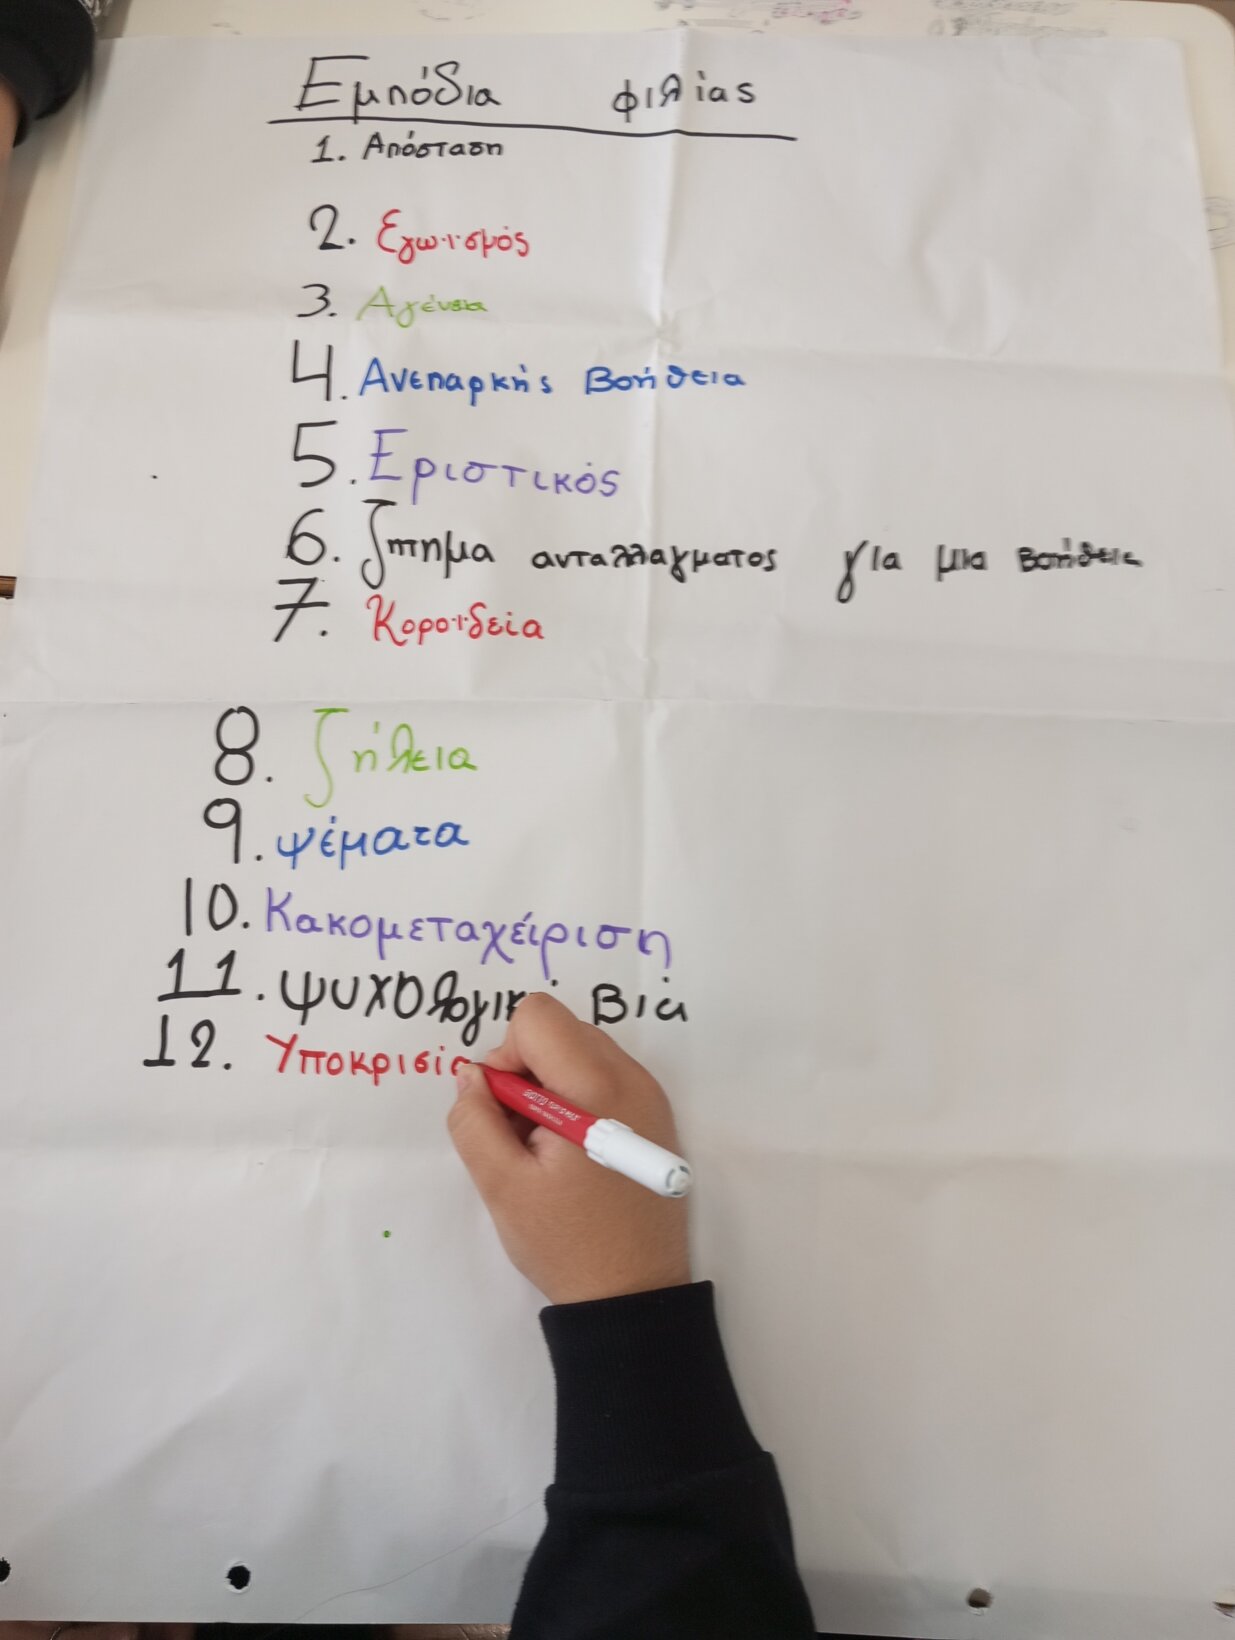 Εμπόδια φιλίας
1. Απόσταση
2. Εγωισμός
3. Αγένεια
4. Ανεπαρκής Βοήθεια
5. Εριστικός
6. ζητημα ανταλλαγματος για μια βοήθεια
7. Κοροϊδεία
8. ζήλεια
9. ψέματα
10. Κακομεταχείριση
11. ψυχολογική Βία
12. Υποκρισία